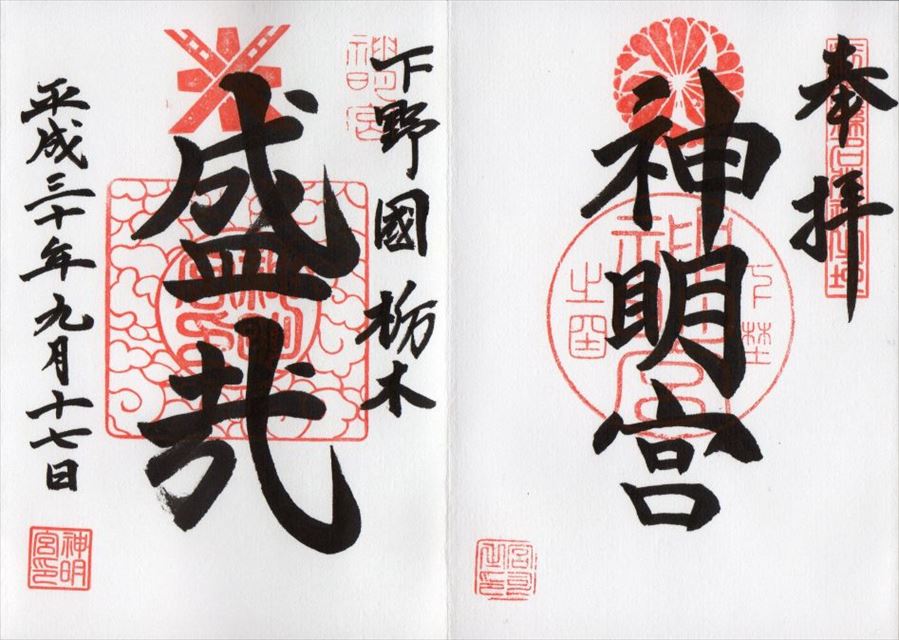 奉拝
神明宮
下野國 栃木
盛哉
平成三十年九月十七日
神明
宮印